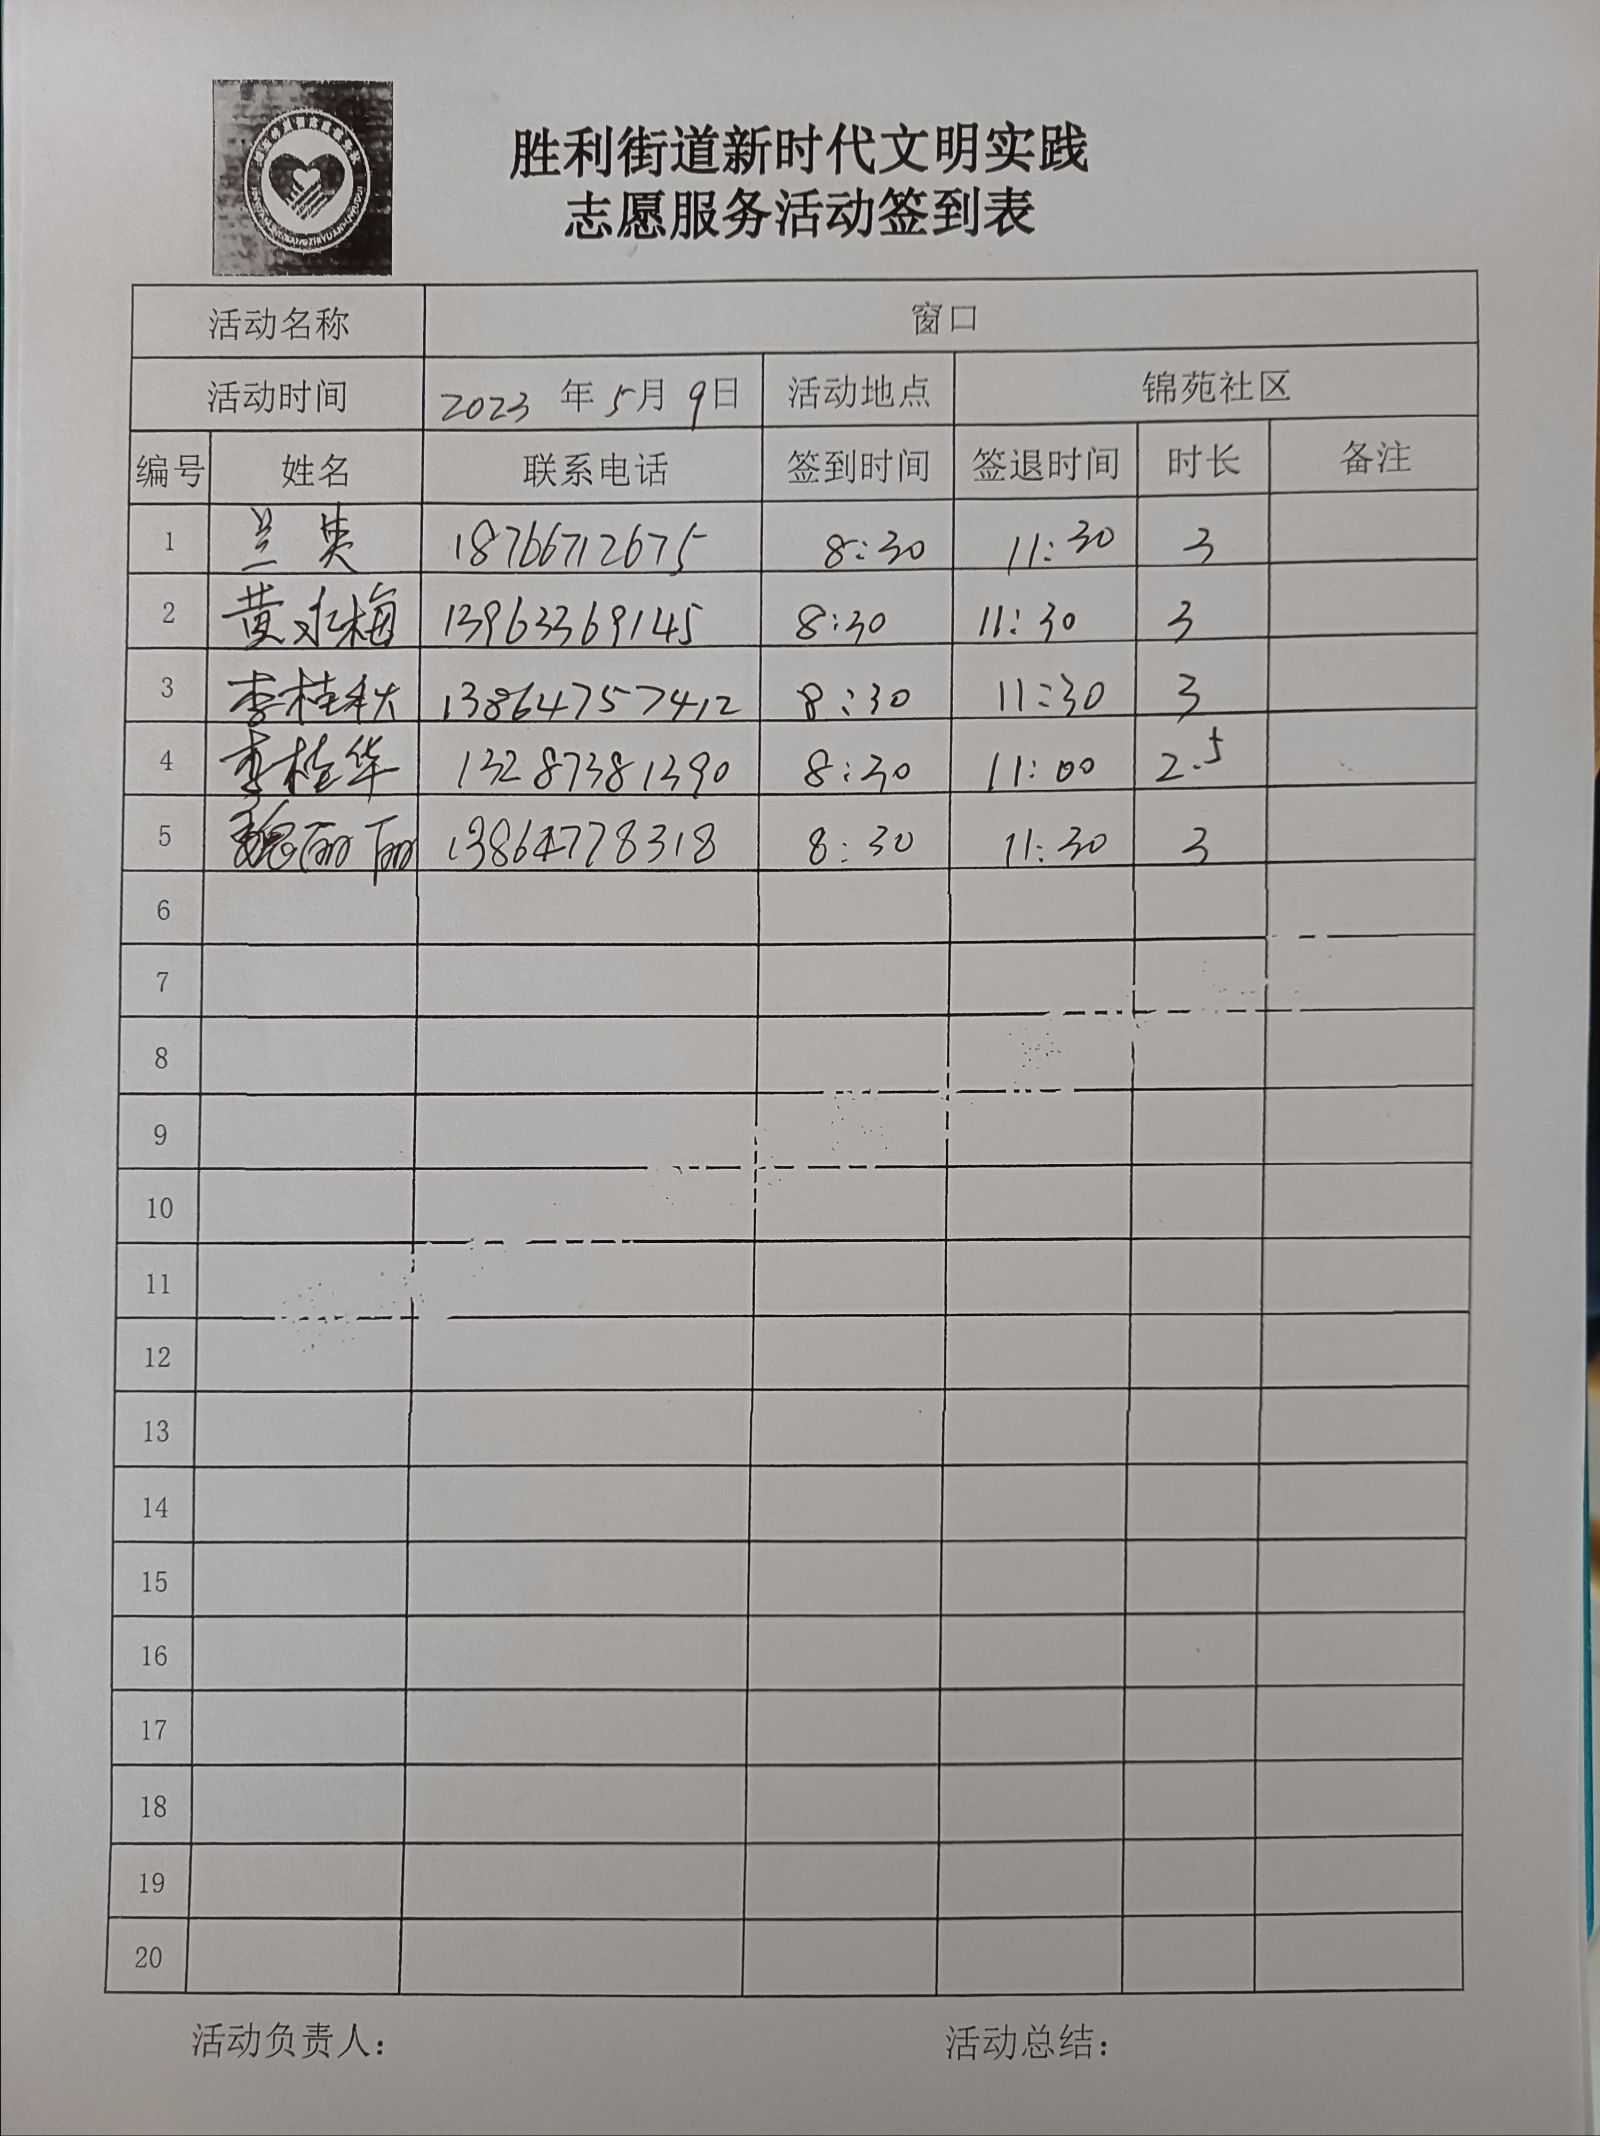 胜利街道新时代文明实践
志愿服务活动签到表
活动名称 窗口
活动时间 2023 年 5月 9日 活动地点 锦苑社区
编号 姓名 联系电话 签到时间 签退时间 时长 备注
1 兰英 18766712675 8:30 11:30 3
2 黄永梅 13963369145 8:30 11:30 3
3 李桂秋 13864757412 8:30 11:30 3
4 李桂华 13287381390 8:30 11:00 2.5
5 魏丽丽 13864778318 8:30 11:30 3
6
7
8
9
10
11
12
13
14
15
16
17
18
19
20
活动负责人: 活动总结: